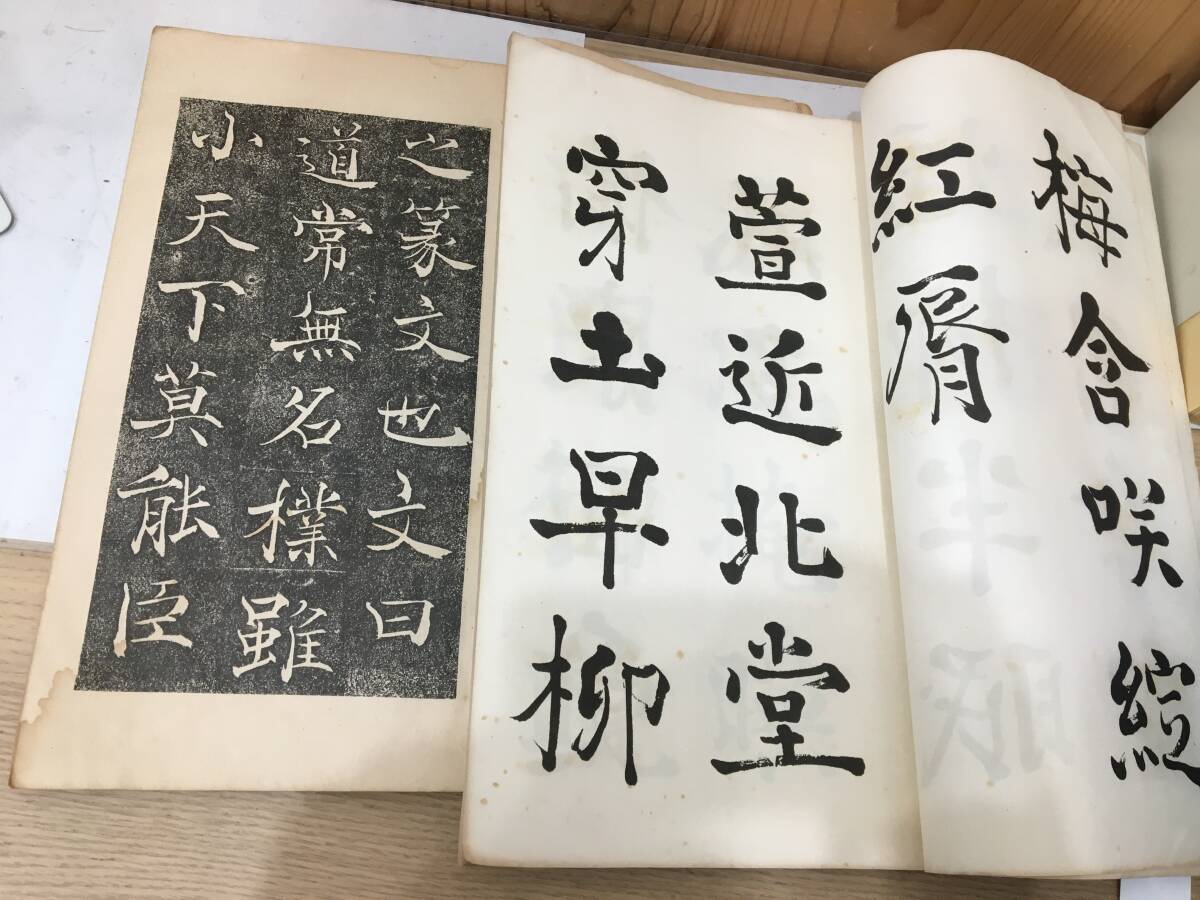 梅含咲綻
紅脣
萱近北堂
穿土早柳
之篆文也文曰
道常無名樸雖
小天下莫能臣